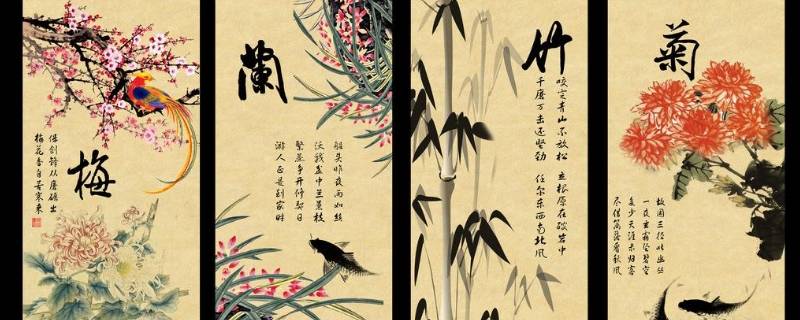 梅
保剑锋从磨砺出
梅花香自苦寒来
蘭
船头昨夜雨如丝
沃我盆中兰蕙枝
繁蕊争开修禊日
游人正是到家时
竹
咬定青山不放松 立根原在破岩中
千磨万击还坚劲 任尔东西南北风
菊
故园三径吐幽丛
一夜玄霜坠碧空
多少天涯未归客
尽借篱落看秋风